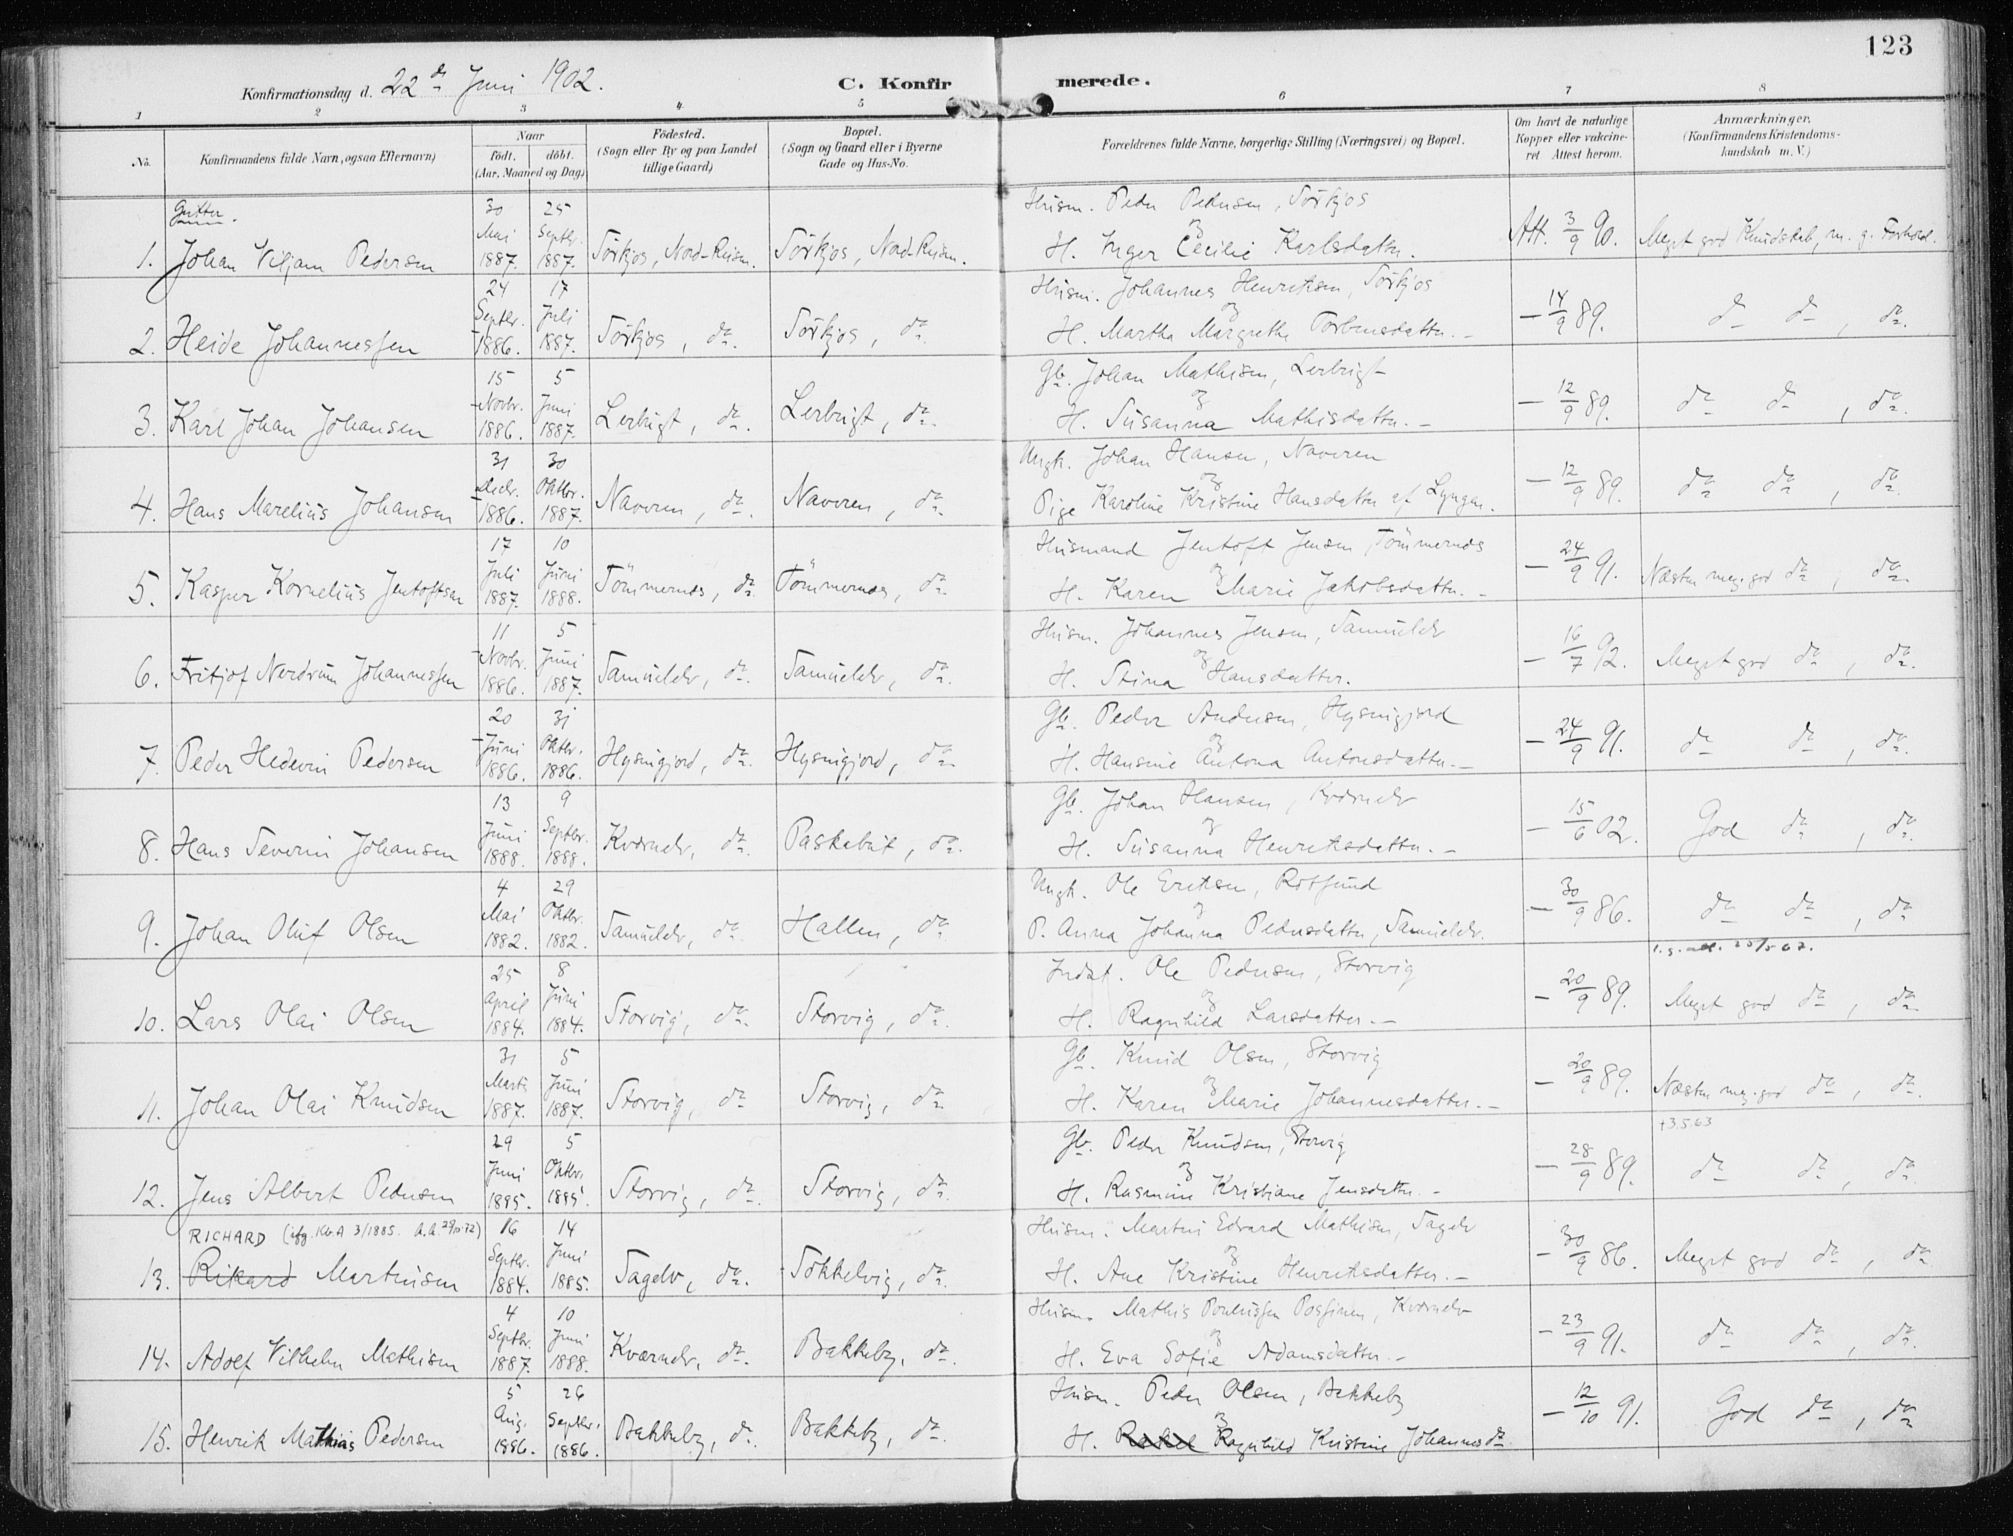 123
Konfirmationsdag d. 22de Juni 1902.
C. Konfirmerede.
1 2 3 4 5 6 7 8
No.
Konfirmandens fulde Navn, ogsaa Efternavn)
Naar
födt. döbt.
(Aar, Maaned og Dag)
Födested.
(Sogn eller By og paa Landet
tillige Gaard)
Bopæl.
(Sogn og Gaard eller i Byerne
Gade og Hus-No.
Forældrenes fulde Navne, borgerlige Stilling (Næringsvei) og Bopæl.
Om havt de naturlige
Kopper eller vakcine-
ret Attest herom.
Anmærkninger.
(Konfirmandens Kristendoms-
kundskab m. V.)
Gutter.
1. Johan Viljam Pedersen 30 Mai 1887. 25 Septbr. 1887. Sørkjos, Nord-Reisen. Sørkjos, Nord-Reisen.
Husm. Peder Pedersen, Sørkjos
og
H. Inger Cecilie Karlsdatter. Att. 3/9 90. Meget god Kundskab, m. g. Forhold.
2. Heide Johannessen 24 Septbr. 1886. 17 Juli 1887. Sørkjos, do. Sørkjos, do.
Husm. Johannes Henriksen, Sørkjos
og
H. Martha Margrethe Torbensdatter. — 14/9 89. do do, do.
3. Karl Johan Johansen 15 Novbr. 1886. 5 Juni 1887. Lerbugt, do. Lerbugt, do.
Gb. Johan Mathisen, Lerbugt
og
H. Susanna Mathisdatter. — 12/9 89. do do, do.
4. Hans Marelius Johansen 31 Decbr. 1886. 30 Oktbr. 1887. Naveren, do. Naveren, do.
Ungk. Johan Hansen, Naveren
og
Pige Karoline Kristine Hansdatter af Lyngen. — 12/9 89. do do, do.
5. Kasper Kornelius Jentoftsen 17 Juli 1887. 10 Juni 1888. Tømmernes, do. Tømmernes, do.
Husmand Jentoft Jensen Tømmernes
og
H. Karen Marie Jakobsdatter. — 24/9 91. Næsten meg. god do, do.
6. Fritjof Nerdrum Johannessen 11 Novbr. 1886. 5 Juni 1887. Samuelelv, do. Samuelelv, do.
Husm. Johannes Jensen, Samuelelv
og
H. Stina Hansdatter. — 16/7 92. Meget god do, do.
7. Peder Hedevin Pedersen 20 Juni 1886. 31 Oktbr. 1886. Hysingjord, do. Hysingjord, do.
Gb. Peder Andersen, Hysingjord
og
H. Hansine Antona Antonsdatter. — 24/9 91. do do, do.
8. Hans Severin Johansen 13 Juni 1888. 9 Septbr. 1888. Kvænelv, do. Paskebut, do.
Gb. Johan Hansen, Kvænelv
og
H. Susanna Henriksdatter. — 15/6 02. God do, do.
9. Johan Oluf Olsen 4 Mai 1882. 29 Oktbr. 1882. Samuelelv, do. Hallen, do.
Ungk. Ole Eriksen, Rotsund
og
P. Anna Johanna Pedersdatter, Samuelelv. — 30/9 86. do do, do
10. Lars Olai Olsen 25 April 1884. 8 Juni 1884. Storvig, do. Storvig, do.
Indst. Ole Pedersen, Storvig
og
H. Ragnhild Larsdatter. — 20/9 89. Meget god do, do
11. Johan Olai Knudsen 31 Marts 1887. 5 Juni 1887. Storvig, do Storvig, do.
Gb. Knud Olsen, Storvig
og
H. Karen Marie Johannesdatter. — 20/9 89. Næsten meg. god do, do.
+3.5.63
12. Jens Albert Pedersen 29 Juni 1885. 5 Oktbr. 1885. Storvig, do. Storvig, do.
Gb. Peder Knudsen, Storvig
og
H. Rasmine Kristiane Jensdatter. — 28/9 89. do do, do.
RICHARD (ifg. Kb.A 3/1885. A.A. 29/11-72)
13. Rikard Martinsen 16 Septbr. 1884. 14 Juni 1885. Sagelv, do. Sokkelvig, do.
Husm. Martin Edvard Mathisen, Sagelv
og
H. Ane Kristine Henriksdatter. — 30/9 86. Meget god do, do
14. Adolf Vilhelm Mathisen 4 Septbr. 1887. 10 Juni 1888. Kvænelv, do. Bakkeby, do.
Husm. Mathis Poulussen Possinen, Kvænelv
og
H. Eva Sofie Adamsdatter. — 23/9 91. do do, do.
15. Henrik Mathias Pedersen 5 Aug. 1886. 26 Septbr. 1886. Bakkeby, do. Bakkeby, do.
Husm. Peder Olsen, Bakkeby
og
H. Ragnhild Kristine Johannesdr. — 12/10 91. God do, do